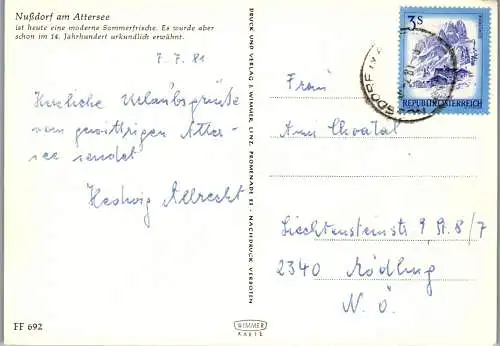 Nußdorf am Attersee
ist heute eine moderne Sommerfrische. Es wurde aber
schon im 14. Jahrhundert urkundlich erwähnt.
7. 7. 81
Herzliche Urlaubsgrüße
vom gewittrigen Atter-
see sendet
Hedwig Albrecht
FF 692
DRUCK UND VERLAG F. WIMMER, LINZ, PROMENADE 23 - NACHDRUCK VERBOTEN
WIMMER
KARTE
3 S
REPUBLIK ÖSTERREICH
NUSSDORF
Frau
Anna
Liechtensteinstr 9 St. 8/7
2340 Mödling
N. Ö.